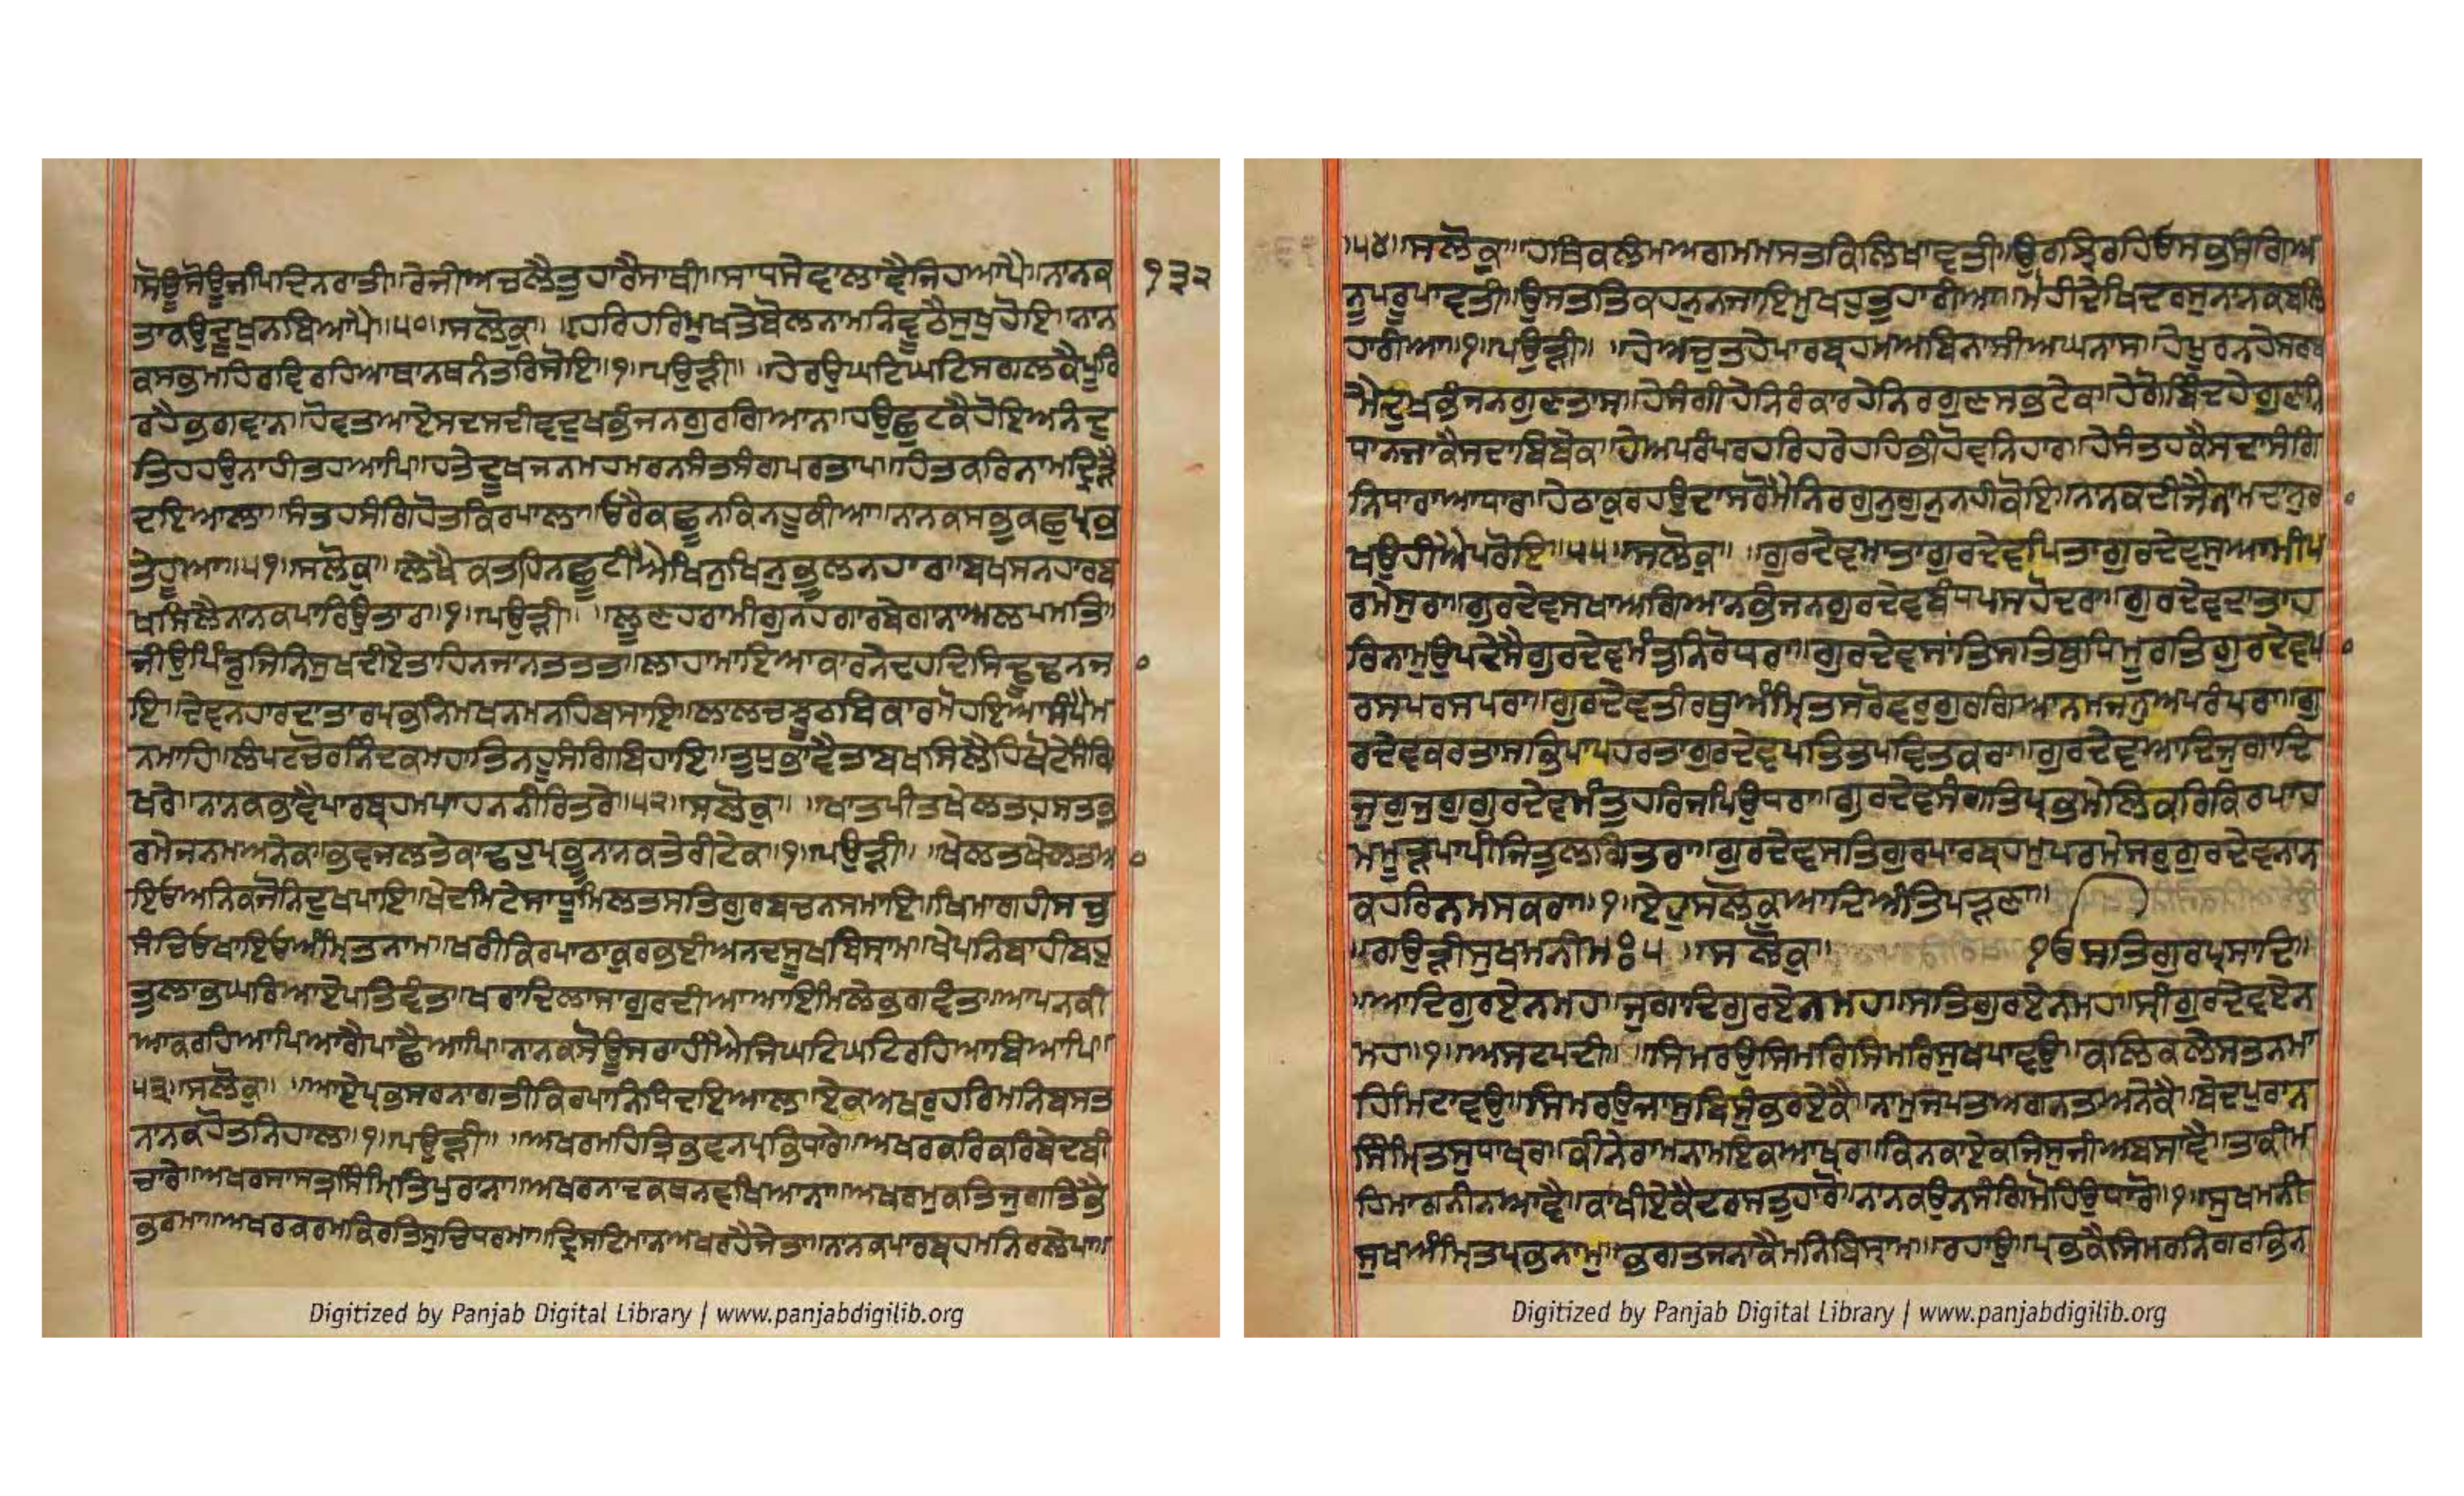 ਸੋਊਸੋਊਜਪਿਦਿਨਰਾਤੀ॥ਰੇਜੀਅਚਲੈਤੁਹਾਰੈਸਾਥੀ॥ਸਾਧਸੇਵਾਲਾਵੈਜਿਹਆਪੈ॥ਨਾਨਕ ੧੩੨
ਤਾਕਉਦੂਖੁਨਬਿਆਪੈ॥੫੦॥ਸਲੋਕੁ॥ ॥ਹਰਿਹਰਿਮੁਖਤੇਬੋਲਨਾਮਨਿਵੂਠੈਸੁਖੁਹੋਇ॥ਨਾਨ
ਕਸਭਮਹਿਰਵਿਰਹਿਆਥਾਨਥਨੰਤਰਿਸੋਇ॥੧॥ਪਉੜੀ॥ ॥ਹੇਰਉਘਟਿਘਟਿਸਗਲਕੈਪੂਰਿ
ਰਹੇਭਗਵਾਨ॥ਹੋਵਤਆਏਸਦਸਦੀਵਦੁਖਭੰਜਨਗੁਰਗਿਆਨ॥ਹਉਛੁਟਕੈਹੋਇਅਨੰਦੁ
ਤਿਹਹਉਨਾਹੀਤਹਆਪਿ॥ਹਤੇਦੂਖਜਨਮਹਮਰਨਸੰਤਸੰਗਪਰਤਾਪ॥ਹਿਤਕਰਿਨਾਮਦ੍ਰਿੜੈ
ਦਇਆਲਾ॥ਸੰਤਹਸੰਗਿਹੋਤਕਿਰਪਾਲਾ॥ਓਰੈਕਛੂਨਕਿਨਹੂਕੀਆ॥ਨਾਨਕਸਭੁਕਛੁਪ੍ਰਭ
ਤੇਹੂਆ॥੫੧॥ਸਲੋਕੁ॥ ਲੇਖੈਕਤਹਿਨਛੂਟੀਐਖਿਨੁਖਿਨੁਭੂਲਨਹਾਰ॥ਬਖਸਨਹਾਰਬ
ਖਸਿਲੈਨਾਨਕਪਾਰਿਉਤਾਰ॥੧॥ਪਉੜੀ॥ ॥ਲੂਣਹਰਾਮੀਗੁਨਹਗਾਰਬੇਗਾਨਾਅਲਪਮਤਿ॥
ਜੀਉਪਿੰਡੁਜਿਨਿਸੁਖਦੀਏਤਾਹਿਨਜਾਨਤਤਤ॥ਲਾਹਾਮਾਇਆਕਾਰਨੇਦਹਦਿਸਿਢੂਢਨਜ
ਇ॥ਦੇਵਨਹਾਰਦਾਤਾਰਪ੍ਰਭਨਿਮਖਨਮਨਹਿਬਸਾਇ॥ਲਾਲਚਝੂਠਬਿਕਾਰਮੋਹਇਆਸੰਪੈਮ
ਨਮਾਹਿ॥ਲੰਪਟਚੋਰਨਿੰਦਕਮਹਾਤਿਨਹੂਸੰਗਿਬਿਹਾਇ॥ਤੁਧੁਭਾਵੈਤਾਬਖਸਿਲੈਹਿਖੋਟੇਸੰਗਿ
ਖਰੇ॥ਨਾਨਕਭਾਵੈਪਾਰਬ੍ਰਹਮਪਾਹਨਨੀਰਿਤਰੇ॥੫੨॥ਸਲੋਕੁ॥ ॥ਖਾਤਪੀਤਖੇਲਤਹਸਤਭ
ਰਮੇਜਨਮਅਨੇਕ॥ਭਵਜਲਤੇਕਾਢਹੁਪ੍ਰਭੂਨਾਨਕਤੇਰੀਟੇਕ॥੧॥ਪਉੜੀ॥ ॥ਖੇਲਤਖੇਲਤਆ
ਇਓਅਨਿਕਜੋਨਿਦੁਖਪਾਇ॥ਖੇਦਮਿਟੇਸਾਧੂਮਿਲਤਸਤਿਗੁਰਬਚਨਸਮਾਇ॥ਖਿਮਾਗਹੀਸਚੁ
ਸੰਚਿਓਖਾਇਓਅੰਮ੍ਰਿਤੁਨਾਮ॥ਖਰੀਕਿਰਪਾਠਾਕੁਰਭਈਅਨਦਸੂਖਬਿਸ੍ਰਾਮ॥ਖੇਪਨਿਬਾਹੀਬਹੁ
ਤੁਲਾਭਘਰਿਆਏਪਤਿਵੰਤ॥ਖਰਾਦਿਲਾਸਾਗੁਰਦੀਆਆਇਮਿਲੇਭਗਵੰਤ॥ਆਪਨਕੀ
ਆਕਰਹਿਆਪਿਆਗੈਪਾਛੈਆਪਿ॥ਨਾਨਕਸੋਊਸਰਾਹੀਐਜਿਘਟਿਘਟਿਰਹਿਆਬਿਆਪਿ॥
੫੩॥ਸਲੋਕੁ॥ ॥ਆਏਪ੍ਰਭਸਰਨਾਗਤੀਕਿਰਪਾਨਿਧਿਦਇਆਲ॥ਏਕਅਖਰੁਹਰਿਮਨਿਬਸਤ
ਨਾਨਕਹੋਤਨਿਹਾਲ॥੧॥ਪਉੜੀ॥ ॥ਅਖਰਮਹਿਤ੍ਰਿਭਵਨਪ੍ਰਭਿਧਾਰੇ॥ਅਖਰਕਰਿਕਰਿਬੇਦਬੀ
ਚਾਰੇ॥ਅਖਰਸਾਸਤ੍ਰਸਿੰਮ੍ਰਿਤਿਪੁਰਾਨਾ॥ਅਖਰਨਾਦਕਥਨਵਖਿਆਨਾ॥ਅਖਰਮੁਕਤਿਜੁਗਤਿਭੈ
ਭਰਮਾ॥ਅਖਰਕਰਮਕਿਰਤਿਸੁਚਿਧਰਮਾ॥ਦ੍ਰਿਸਟਿਮਾਨਅਖਰਹੈਜੇਤਾ॥ਨਾਨਕਪਾਰਬ੍ਰਹਮਨਿਰਲੇਪਾ॥
॥੫੪॥ਸਲੋਕੁ॥ ॥ਹਥਿਕਲੰਮਅਗਮਮਸਤਕਿਲਿਖਾਵਤੀ॥ਉਰਝਿਰਹਿਓਸਭਸੰਗਿਅ
ਨੂਪਰੂਪਾਵਤੀ॥ਉਸਤਤਿਕਹਨੁਨਜਾਇਮੁਖਹੁਤੁਹਾਰੀਆ॥ਮੋਹੀਦੇਖਿਦਰਸੁਨਾਨਕਬਲਿ
ਹਾਰੀਆ॥੧॥ਪਉੜੀ॥ ॥ਹੇਅਚੁਤਹੇਪਾਰਬ੍ਰਹਮਅਬਿਨਾਸੀਅਘਨਾਸ॥ਹੇਪੂਰਨਹੇਸਰਬ
ਮੈਦੁਖਭੰਜਨਗੁਣਤਾਸ॥ਹੇਸੰਗੀਹੇਨਿਰੰਕਾਰਹੇਨਿਰਗੁਣਸਭਟੇਕ॥ਹੇਗੋਬਿੰਦਹੇਗੁਣਨਿ
ਧਾਨਜਾਕੈਸਦਾਬਿਬੇਕ॥ਹੇਅਪਰੰਪਰਹਰਿਹਰੇਹਹਿਭੀਹੋਵਨਿਹਾਰ॥ਹੇਸੰਤਹਕੈਸਦਾਸੰਗਿ
ਨਿਧਾਰਾਆਧਾਰ॥ਹੇਠਾਕੁਰਹਉਦਾਸਰੋਮੈਨਿਰਗੁਨਗੁਨੁਨਹੀਕੋਇ॥ਨਾਨਕਦੀਜੈਨਾਮਦਾਨੁਰ
ਖਉਹੀਐਪਰੋਇ॥੫੫॥ਸਲੋਕੁ॥ ॥ਗੁਰਦੇਵਮਾਤਾਗੁਰਦੇਵਪਿਤਾਗੁਰਦੇਵਸੁਆਮੀਪ
ਰਮੇਸੁਰਾ॥ਗੁਰਦੇਵਸਖਾਅਗਿਆਨਭੰਜਨਗੁਰਦੇਵਬੰਧਪਸਹੋਦਰਾ॥ਗੁਰਦੇਵਦਾਤਾਹ
ਰਿਨਾਮੁਉਪਦੇਸੈਗੁਰਦੇਵਮੰਤੁਨਿਰੋਧਰਾ॥ਗੁਰਦੇਵਸਾਂਤਿਸਤਿਬੁਧਿਮੂਰਤਿਗੁਰਦੇਵਪ
ਰਸਪਰਸਪਰਾ॥ਗੁਰਦੇਵਤੀਰਥੁਅੰਮ੍ਰਿਤਸਰੋਵਰੁਗੁਰਗਿਆਨਮਜਨੁਅਪਰੰਪਰਾ॥ਗੁ
ਰਦੇਵਕਰਤਾਸਭਿਪਾਪਹਰਤਾਗੁਰਦੇਵਪਤਿਤਪਵਿਤਕਰਾ॥ਗੁਰਦੇਵਆਦਿਜੁਗਾਦਿ
ਜੁਗੁਜੁਗੁਗੁਰਦੇਵਮੰਤੁਹਰਿਜਪਿਉਧਰਾ॥ਗੁਰਦੇਵਸੰਗਤਿਪ੍ਰਭਮੇਲਿਕਰਿਕਿਰਪਾਹ
ਮਮੂੜਪਾਪੀਜਿਤੁਲਗਿਤਰਾ॥ਗੁਰਦੇਵਸਤਿਗੁਰਪਾਰਬ੍ਰਹਮੁਪਰਮੇਸਰੁਗੁਰਦੇਵਨਾਨ
ਕਹਰਿਨਮਸਕਰਾ॥੧॥ਏਹੁਸਲੋਕੁਆਦਿਅੰਤਿਪੜਣਾ॥
॥ਗਉੜੀਸੁਖਮਨੀਮਃ੫ ॥ਸਲੋਕੁ॥ ੴਸਤਿਗੁਰਪ੍ਰਸਾਦਿ॥
॥ਆਦਿਗੁਰਏਨਮਹ॥ਜੁਗਾਦਿਗੁਰਏਨਮਹ॥ਸਤਿਗੁਰਏਨਮਹ॥ਸ੍ਰੀਗੁਰਦੇਵਏਨ
ਮਹ॥੧॥ਅਸਟਪਦੀ॥ ॥ਸਿਮਰਉਸਿਮਰਿਸਿਮਰਿਸੁਖਪਾਵਉ॥ਕਲਿਕਲੇਸਤਨਮਾ
ਹਿਮਿਟਾਵਉ॥ਸਿਮਰਉਜਾਸੁਬਿਸੁੰਭਰਏਕੈ॥ਨਾਮੁਜਪਤਅਗਨਤਅਨੇਕੈ॥ਬੇਦਪੁਰਾਨ
ਸਿੰਮ੍ਰਿਤਸੁਧਾਖ੍ਰ॥ਕੀਨੇਰਾਮਨਾਮਇਕਆਖ੍ਰ॥ਕਿਨਕਾਏਕਜਿਸੁਜੀਅਬਸਾਵੈ॥ਤਾਕੀਮ
ਹਿਮਾਗਨੀਨਆਵੈ॥ਕਾਂਖੀਏਕੈਦਰਸਤੁਹਾਰੋ॥ਨਾਨਕਉਨਸੰਗਿਮੋਹਿਉਧਾਰੋ॥੧॥ਸੁਖਮਨੀ
ਸੁਖਅੰਮ੍ਰਿਤਪ੍ਰਭਨਾਮੁ॥ਭਗਤਜਨਾਕੈਮਨਿਬਿਸ੍ਰਾਮ॥ਰਹਾਉ॥ਪ੍ਰਭਕੈਸਿਮਰਨਿਗਰਭਿਨ
Digitized by Panjab Digital Library | www.panjabdigilib.org
Digitized by Panjab Digital Library | www.panjabdigilib.org